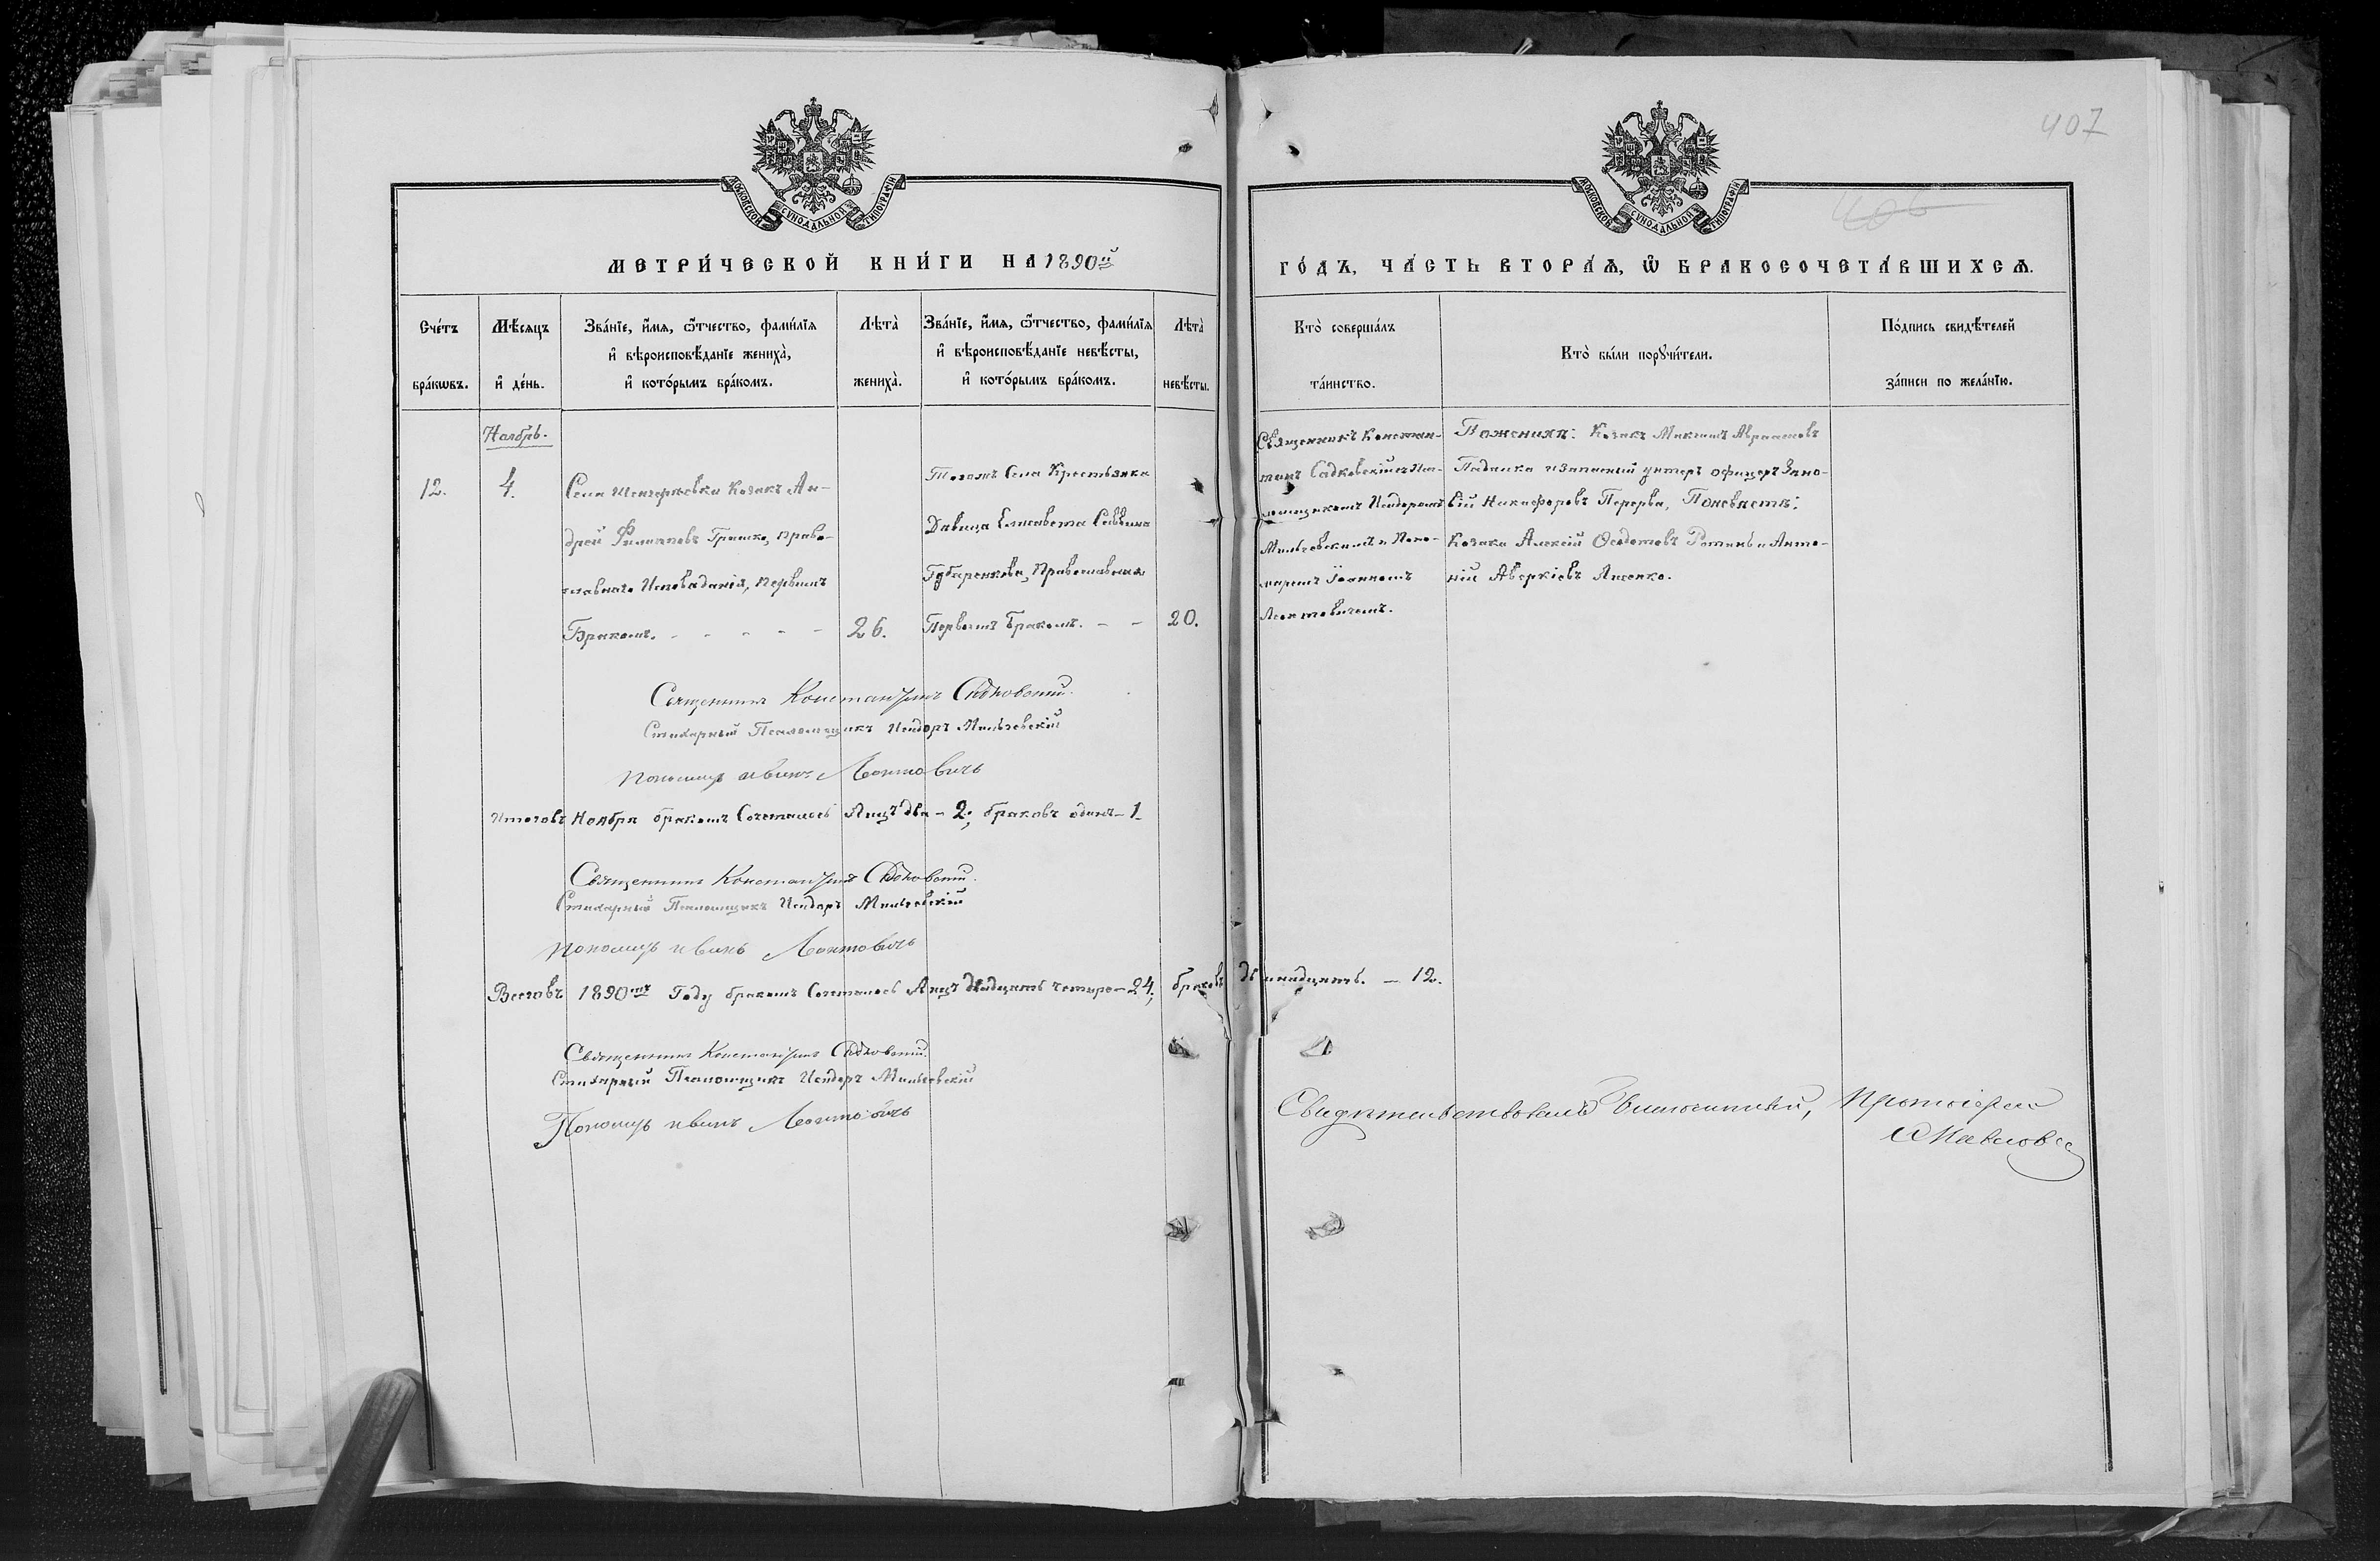 407
МОСКОВСКОЙ СѴНОДАЛЬНОЙ ТИПОГРАФІИ
МОСКОВСКОЙ СѴНОДАЛЬНОЙ ТИПОГРАФІИ
406
МЕТРИ́ЧЕСКОЙ КНИ́ГИ НА 1890й
ГО́ДЪ, ЧА́СТЬ ВТОРА́Ѧ, Ѡ҆ БРАКОСОЧЕТА́ВШИХСѦ.
Сче́тъ бра́кѡвъ.
Мѣ́сѧцъ и҆ де́нь.
Зва́нїе, и҆́мѧ, ѻ҆́тчество, фами́лїѧ
и҆ вѣроисповѣ́данїе жениха̀,
и҆ кото́рымъ бра́комъ.
Лѣта̀ жениха̀.
Зва́нїе, и҆́мѧ, ѻ҆́тчество, фами́лїѧ
и҆ вѣроисповѣ́данїе невѣ́сты,
и҆ кото́рымъ бра́комъ.
Лѣта̀ невѣ́сты.
Кто̀ соверша́лъ та́инство.
Кто̀ бы́ли порꙋчи́тели.
По́дпись свидѣ́телей за́писи по жела́нїю.
Ноябрь.
12.
4.
Села Козакъ Ан-
дрей Филиповъ Гришко, право-
славнаго Исповѣданія, первымъ
Бракомъ. - - - - -
26.
Тогожъ Села Крестьянка
Дѣвица Елисавета Саввина
Губаренкова, Православная
Первымъ бракомъ. - -
20.
Священникъ Констан-
тинъ Садковскій съ Пса-
ломщикомъ Исидоромъ
Мильчевскимъ и Поно-
маремъ Іоанномъ
Леонтовичемъ.
Пожениху: Козакъ Максимъ Авраамовъ
Падалка и запасный унтеръ офицеръ Зино-
вій Никифоровъ Перерва, Поневѣстѣ:
Козаки Алексій Ѳедотовъ Ротинь и Анто-
ній Аверкіевъ Лисенко.
Священникъ Константинъ Садковскій.
Стихарный Псаломщикъ Исидоръ Мильчевскій
Пономарь Иванъ Леонтовичъ
Итоговъ Ноября бракомъ Сочеталось Лицъ два - 2; браковъ одинъ - 1.
Священникъ Константинъ Садковскій.
Стихарный Псаломщикъ Исидоръ Мильчевскій
Пономарь Иванъ Леонтовичъ
Всеговъ 1890мъ Году бракомъ Сочеталось Лицъ двадцать четыре - 24; браковъ двѣнадцать. - 12.
Священникъ Константинъ Садковскій.
Стихарный Псаломщикъ Исидоръ Мильчевскій
Пономарь Иванъ Леонтовичъ
Свидѣтельствовалъ Благочинный, Протоіерей